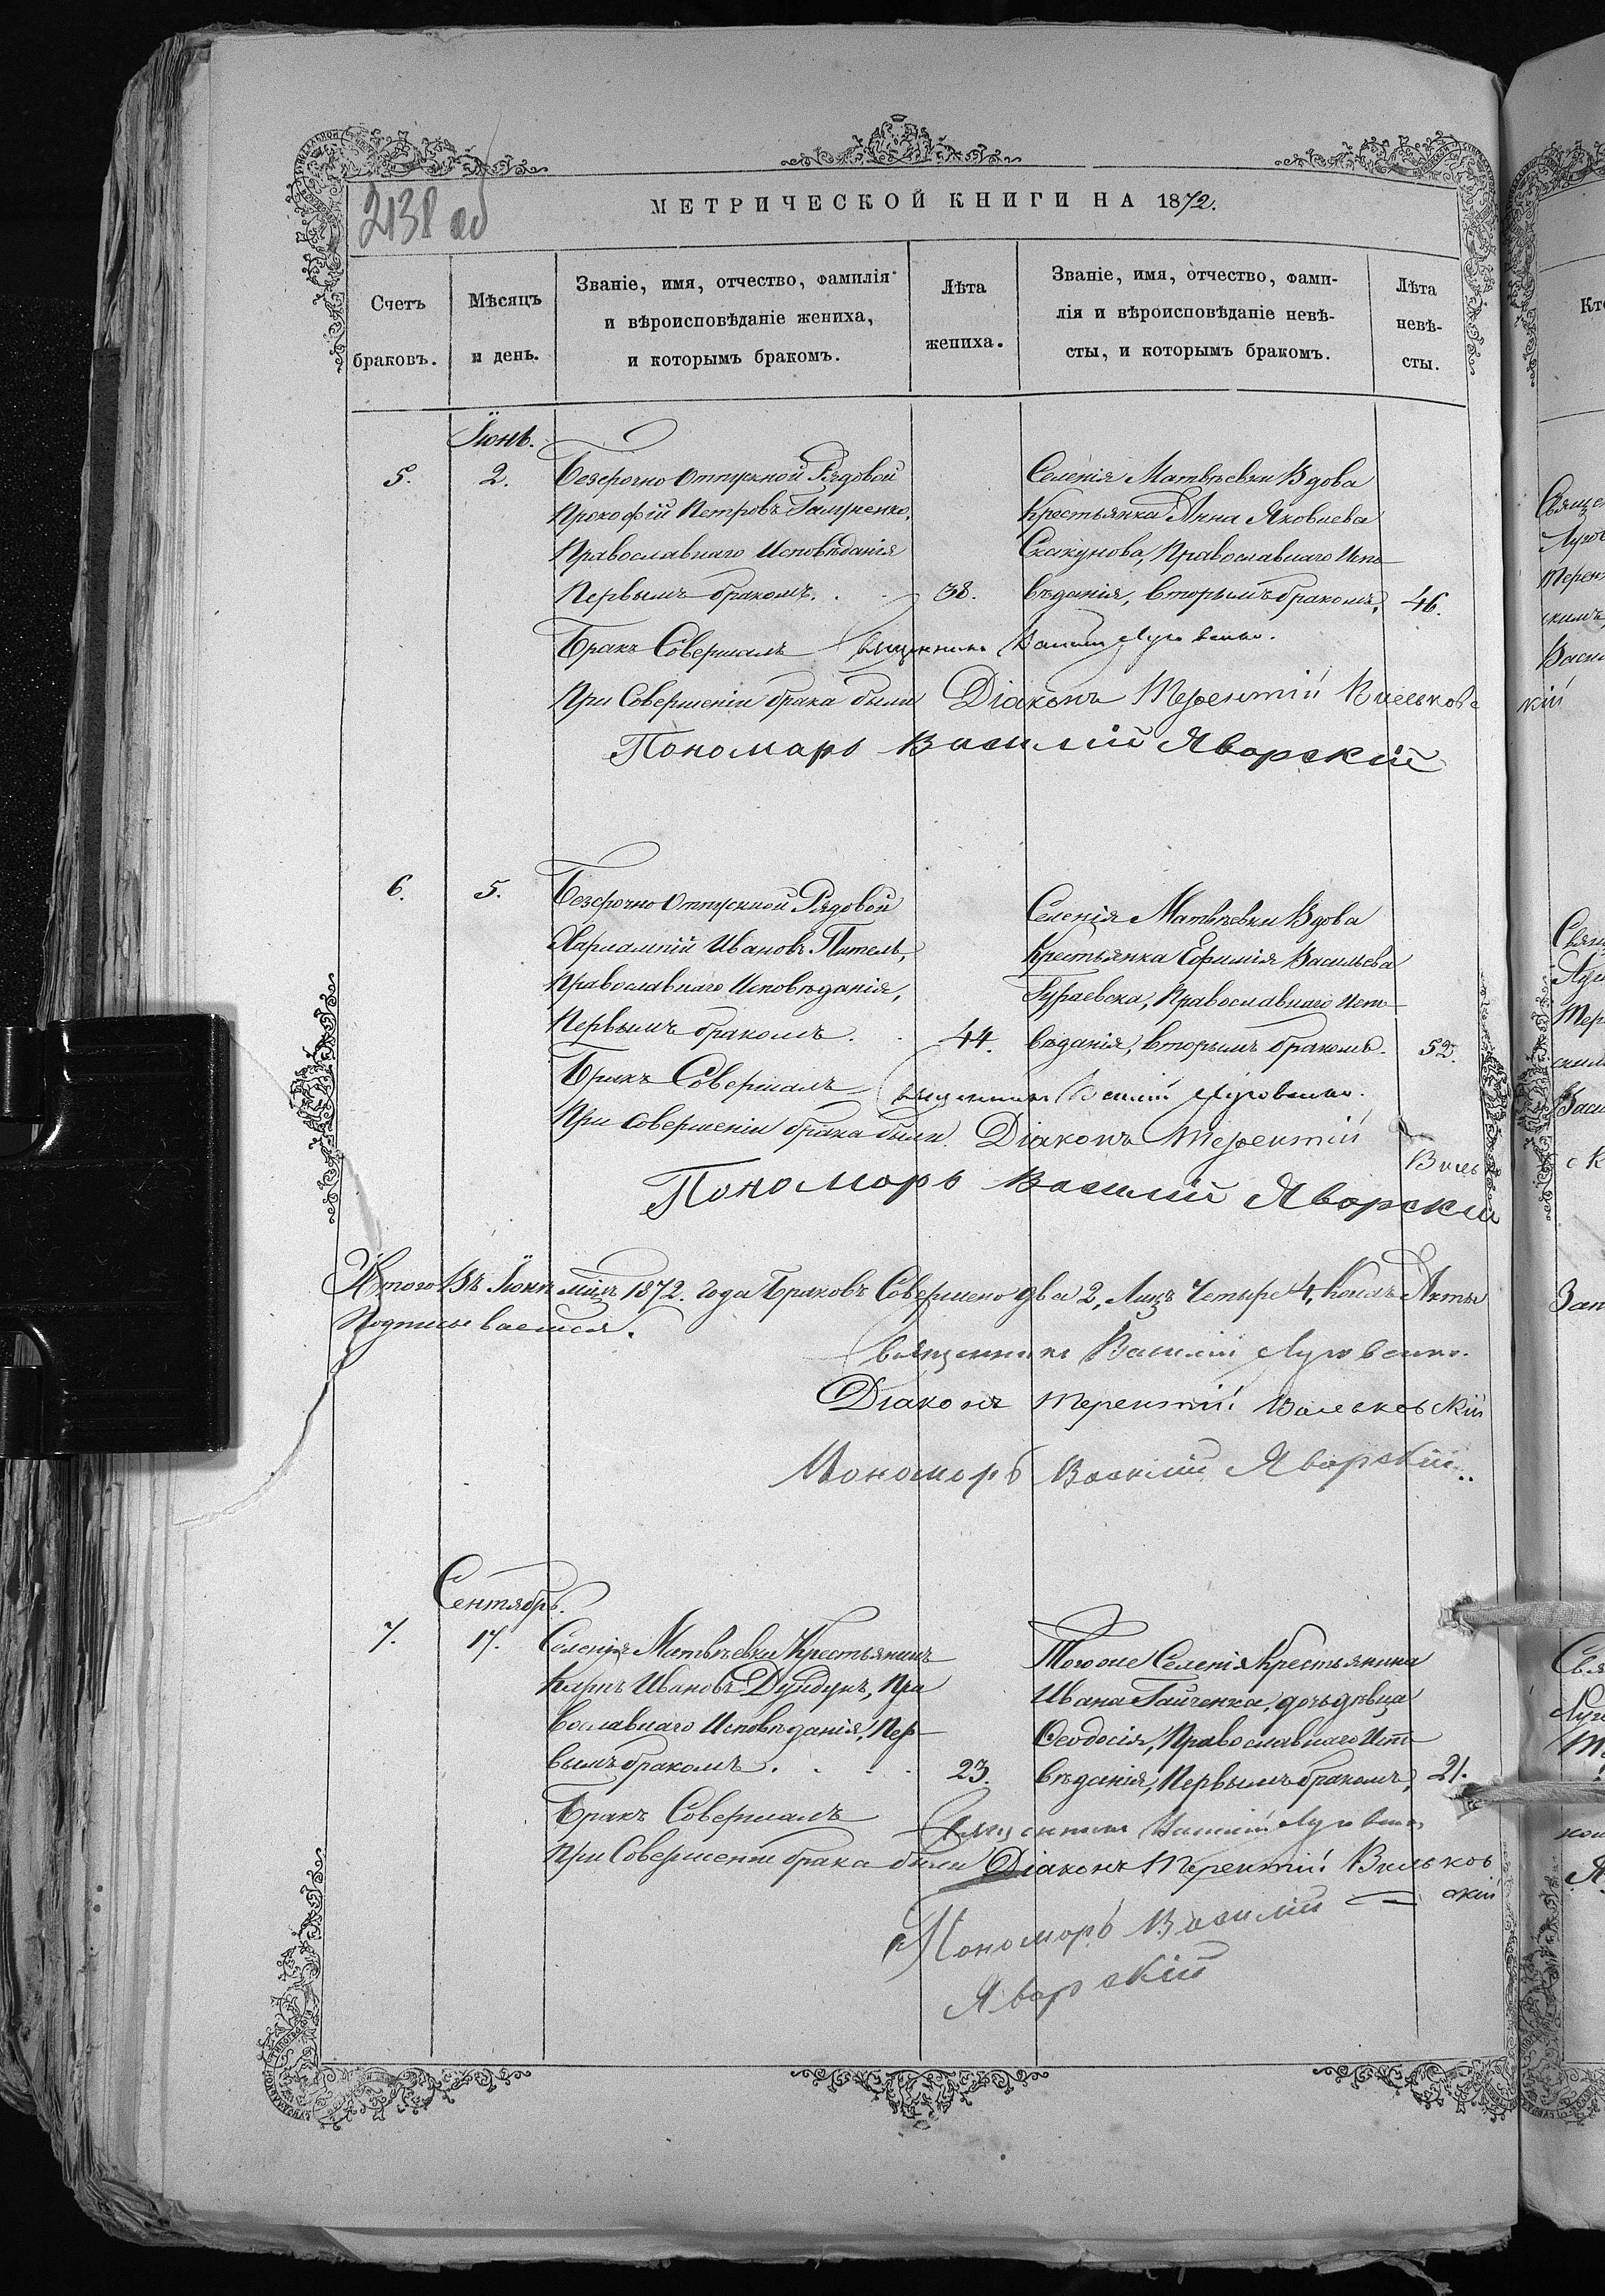 2138 об
МЕТРИЧЕСКОЙ КНИГИ НА 1872.
Счетъ браковъ.
Мѣсяцъ и день.
Званіе, имя, отчество, фамилія
и вѣроисповѣданіе жениха,
и которымъ бракомъ.
Лѣта жениха.
Званіе, имя, отчество, фами-
лія и вѣроисповѣданіе невѣ-
сты, и которымъ бракомъ.
Лѣта невѣ-
сты.
Іюнь.
5. 2.
Безсрочно отпускной Рядовой
Прокофій Петровъ
Православнаго Исповѣданія
Первымъ бракомъ. 38.
Селенія Матвѣевки Вдова
Крестьянка Анна Яковлева
Скакунова, Православнаго Испо-
вѣданія, вторымъ бракомъ, 46.
Бракъ Совершалъ Священникъ Василій
При Совершеніи брака были Діаконъ Терентій
Пономарь Василій Яворскій
6. 5.
Безсрочно отпускной Рядовой
Харлампій Ивановъ
Православнаго Исповѣданія,
Первымъ бракомъ. 44.
Селенія Матвѣевки Вдова
Крестьянка Ефимія Васильева
Православнаго Испо-
вѣданія, вторымъ бракомъ. 52.
Бракъ Совершалъ Священникъ Василій
При Совершеніи брака были Діаконъ Терентій
Пономарь Василій Яворскій
Итого Въ Іюнѣ мцѣ 1872. года Браковъ Совершено два 2, Лицъ Четыре 4,
Подписываемся.
Священникъ Василій
Діаконъ Терентій
Пономарь Василій Яворскій
Сентябрь.
7. 17.
Селенія Матвѣевки Крестьянинъ
Карпъ Ивановъ Пра
вославнаго Исповѣданія, Пер-
вымъ бракомъ. 23.
Тогоже Селенія Крестьянина
Ивана дочь дѣвица
Ѳеодосія, Православнаго Испо
вѣданія, Первымъ бракомъ, 21.
Бракъ Совершалъ Священникъ Василій
При Совершеніи брака были Діаконъ Терентій
Пономарь Василій
Яворскій